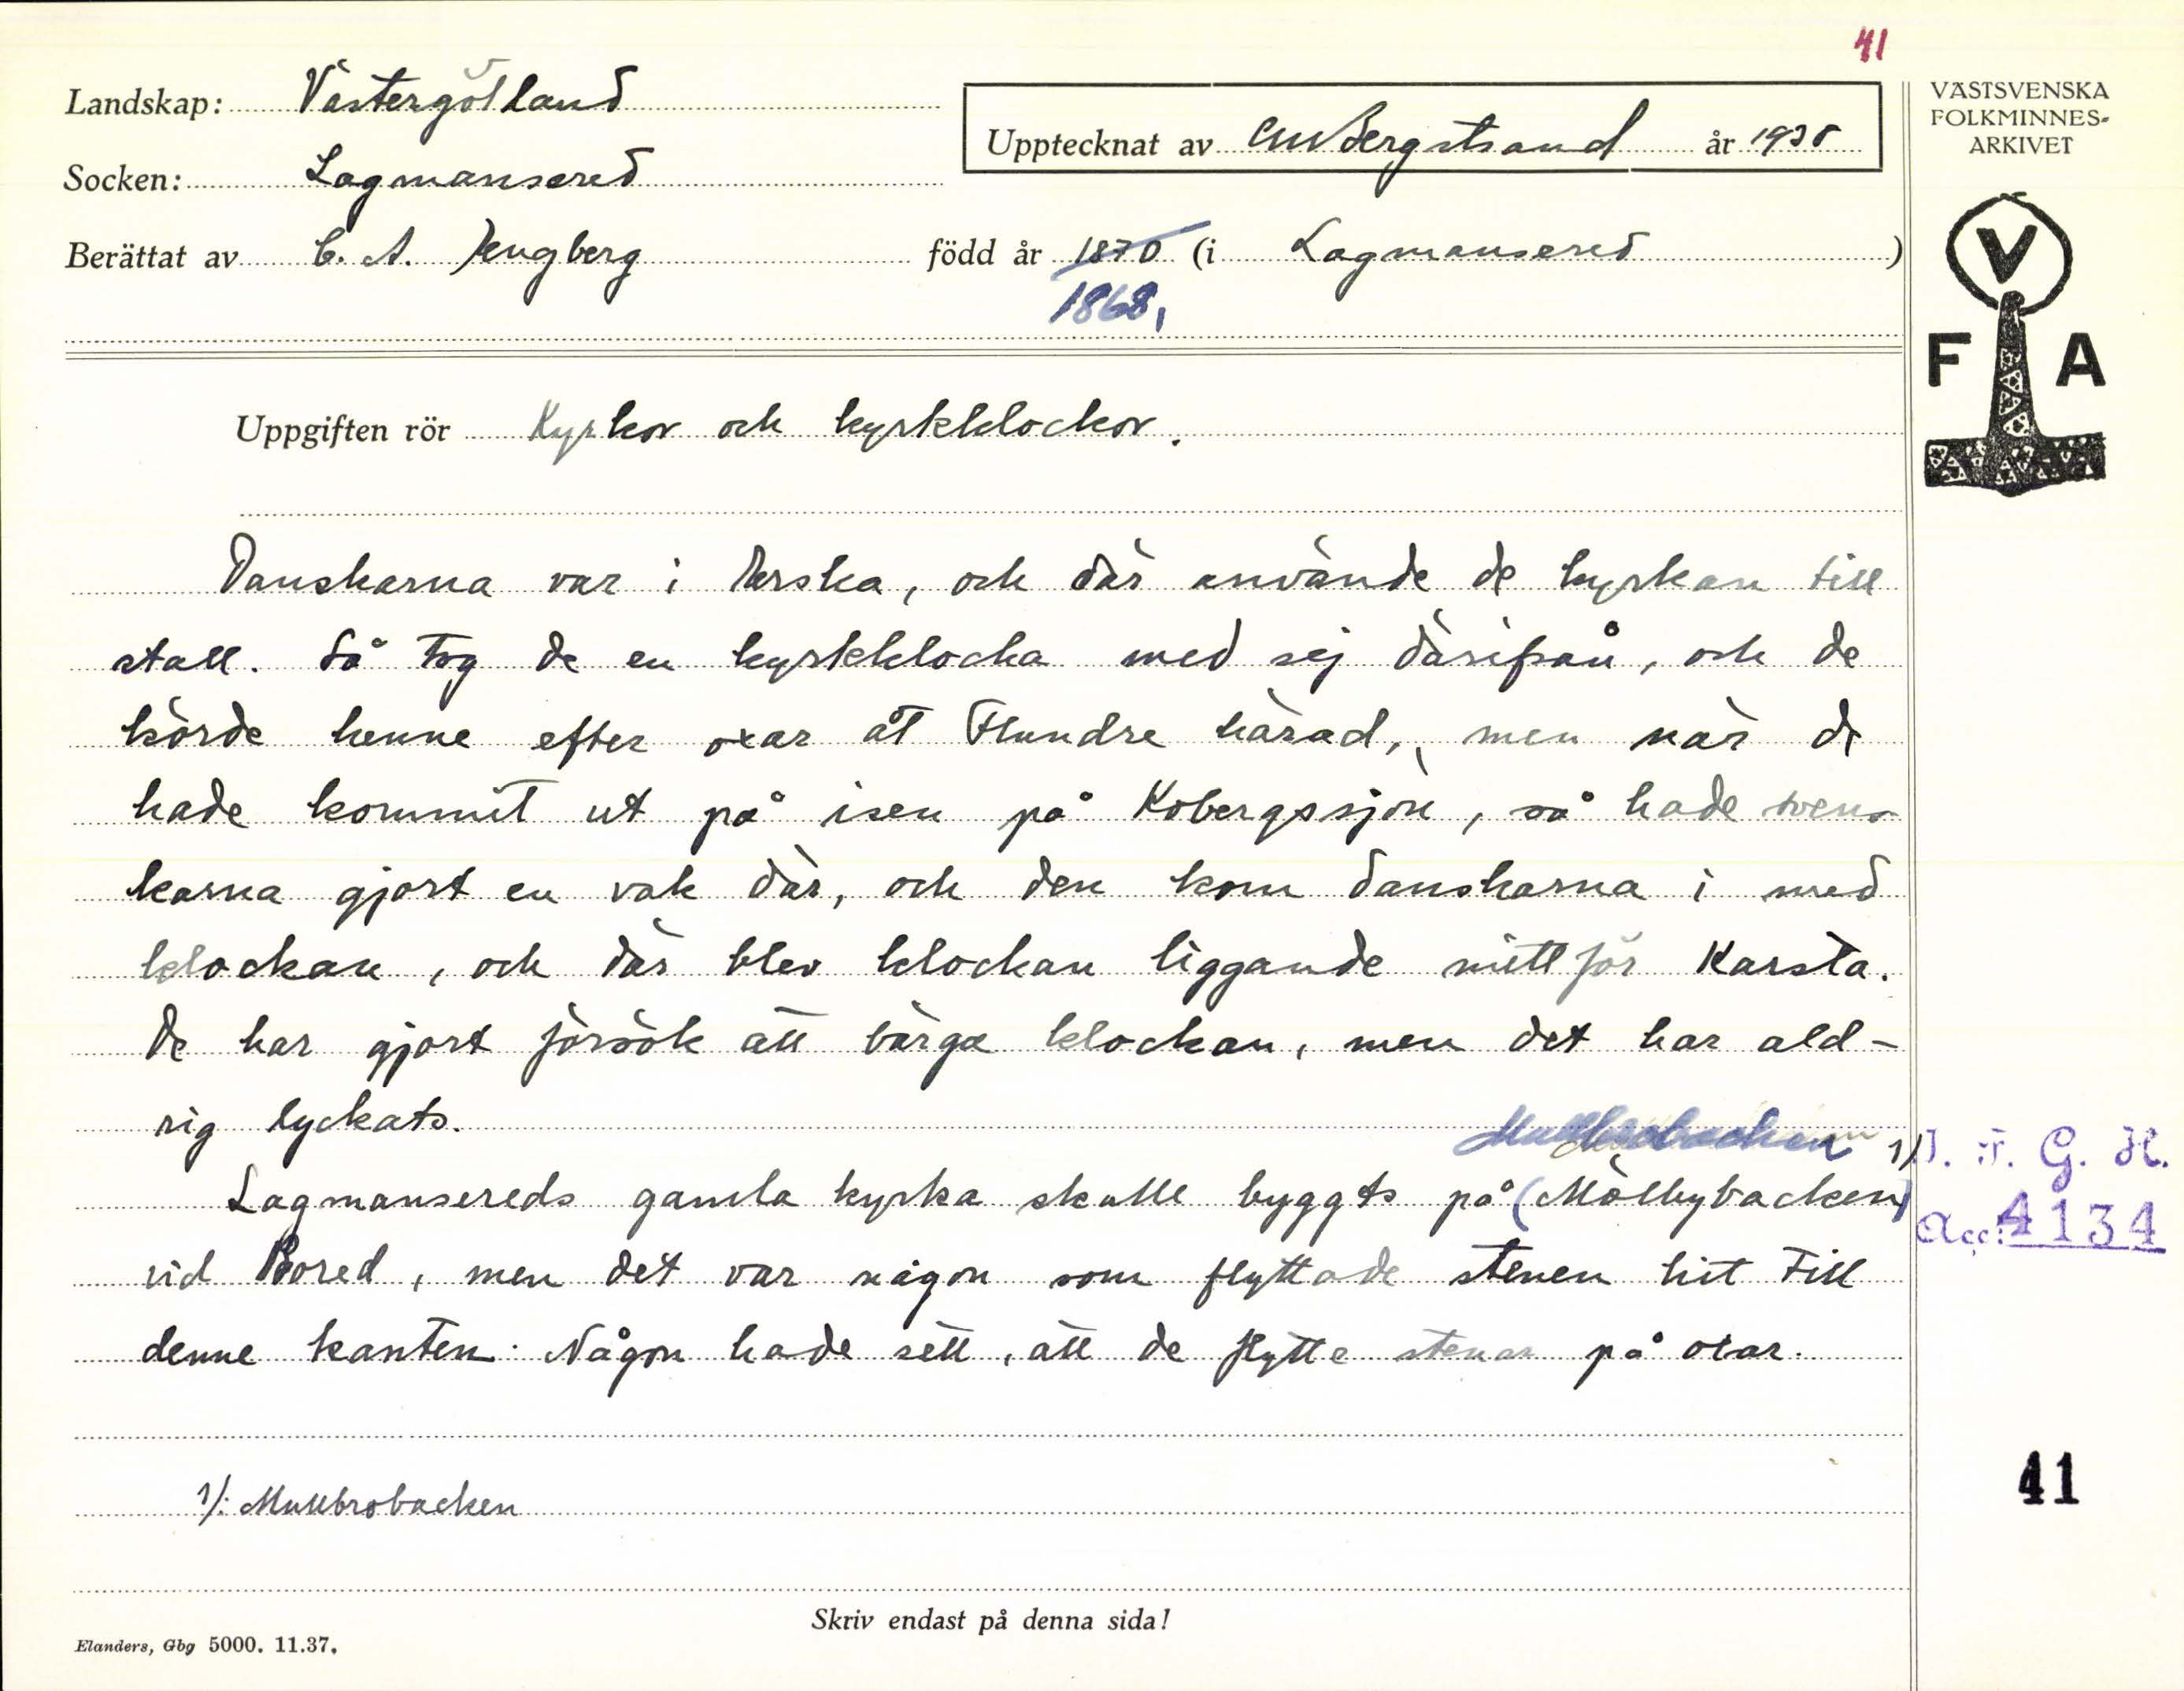 41
Landskap: Västergötland
Socken: Lagmansered
Berättat av C. A. Ljungberg
Upptecknat av CM Bergstrand år 1938
född år 1870 (i Lagmansered )
1868,
VÄSTSVENSKA
FOLKMINNES-
ARKIVET
V
F A
Uppgiften rör Kyrkor och kyrkklockor.
Danskarna var i Erska, och där använde de kyrkan till
stall. Så tog de en kyrkklocka med sej därifrån, och de
körde henne efter oxar åt Flundre härad, men när de
hade kommit ut på isen på Kobergssjön, så hade svens
karna gjort en vak där, och den kom danskarna i med
klockan, och där blev klockan liggande mitt för Karsta.
De har gjort försök att bärga klockan, men det har ald-
rig lyckats.
Mullbrobacken 1)
Lagmansereds gamla kyrka skulle byggts på (Mölbybacken)
vid Bored, men det var någon som flyttade stenen hit till
denne kanten. Någon hade sett, att de flytte stenar på oxar.
1/: Mullbrobacken
I. F. G. H.
Acc: 4134
41
Skriv endast på denna sida!
Elanders, Gbg 5000. 11.37.